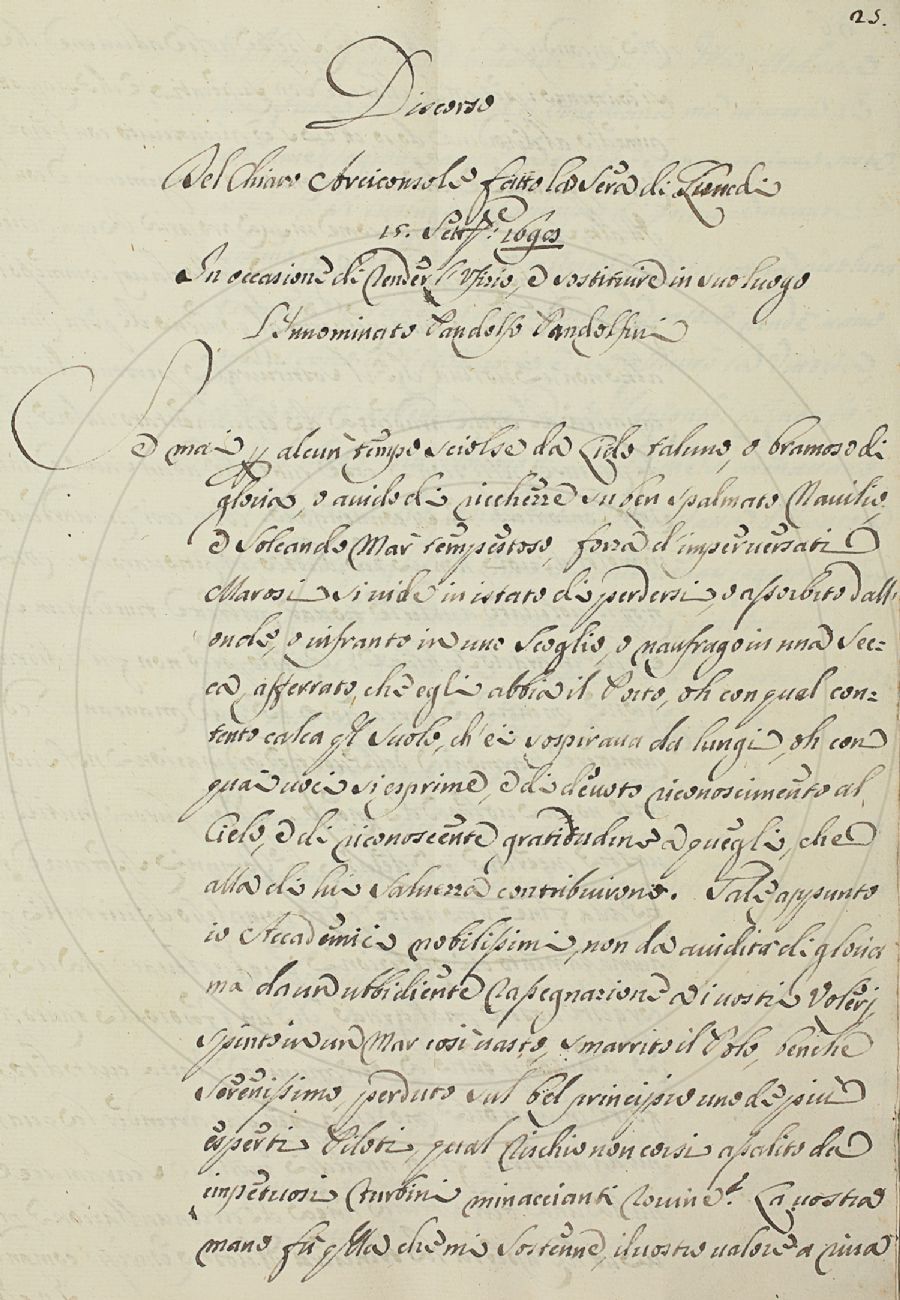 25.
Discorso
Del Chiaro Arciconsole fatto la Sera di Lunedi
15. Settre: 1690
In occasione di render l'Ufizio, e sostituire in suo luogo
L'Innominato Pandolfo Pandolfini
Se mai p alcun tempo sciolse da Lido taluno, o bramoso di
gloria, o avido di ricchezze su ben spalmato Navilio,
e Solcando Mar tempestoso, forza d'imperversati
Marosi si vide in istato di perdersi, o assorbito dall'
onde, o infranto in uno Scoglio, o naufrago in una Sec=
ca, afferrato, che egli abbia il Porto, oh con qual con=
tento calca ql Suolo, ch'ei sospirava da lungi, oh con
quai voci si esprime, e di devoto riconoscimento al
Cielo, e di riconoscente gratitudine a quegli, che
alla di lui Salvezza contribuirono. Tale appunto
io Accademici nobilissimi, non da avidità di gloria
ma da una ubbidiente Rassegnazione a i vostri Voleri,
spinto in un Mar così vasto, smarrito il Polo, benche
Serenissimo, perduto sul bel principio uno de più
esperti Piloti, qual Rischio non corsi assalito da
impetuosi Turbini minaccianti rovine? La vostra
mano fu qlla, che mi Sostenne, il vostro valore a riva